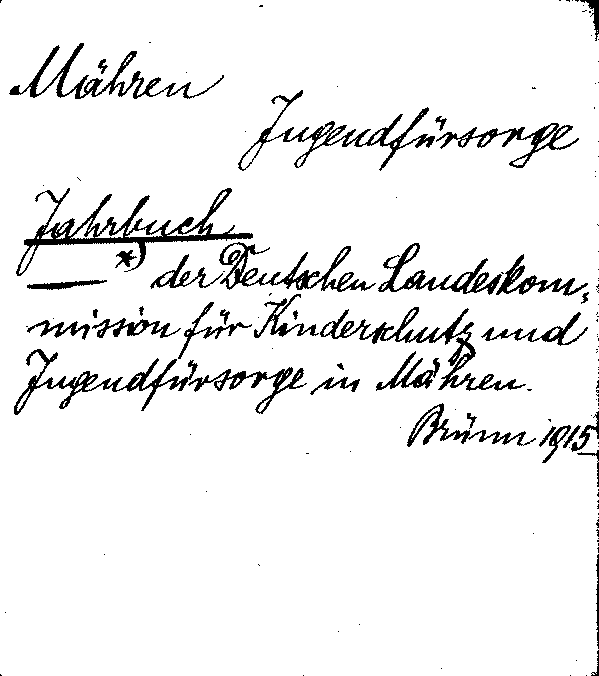 Mähren
Jugendfürsorge
Jahrbuch
— *) der Deutschen Landeskom-
mission für Kinderschutz und
Jugendfürsorge in Mähren.
Brünn 1915